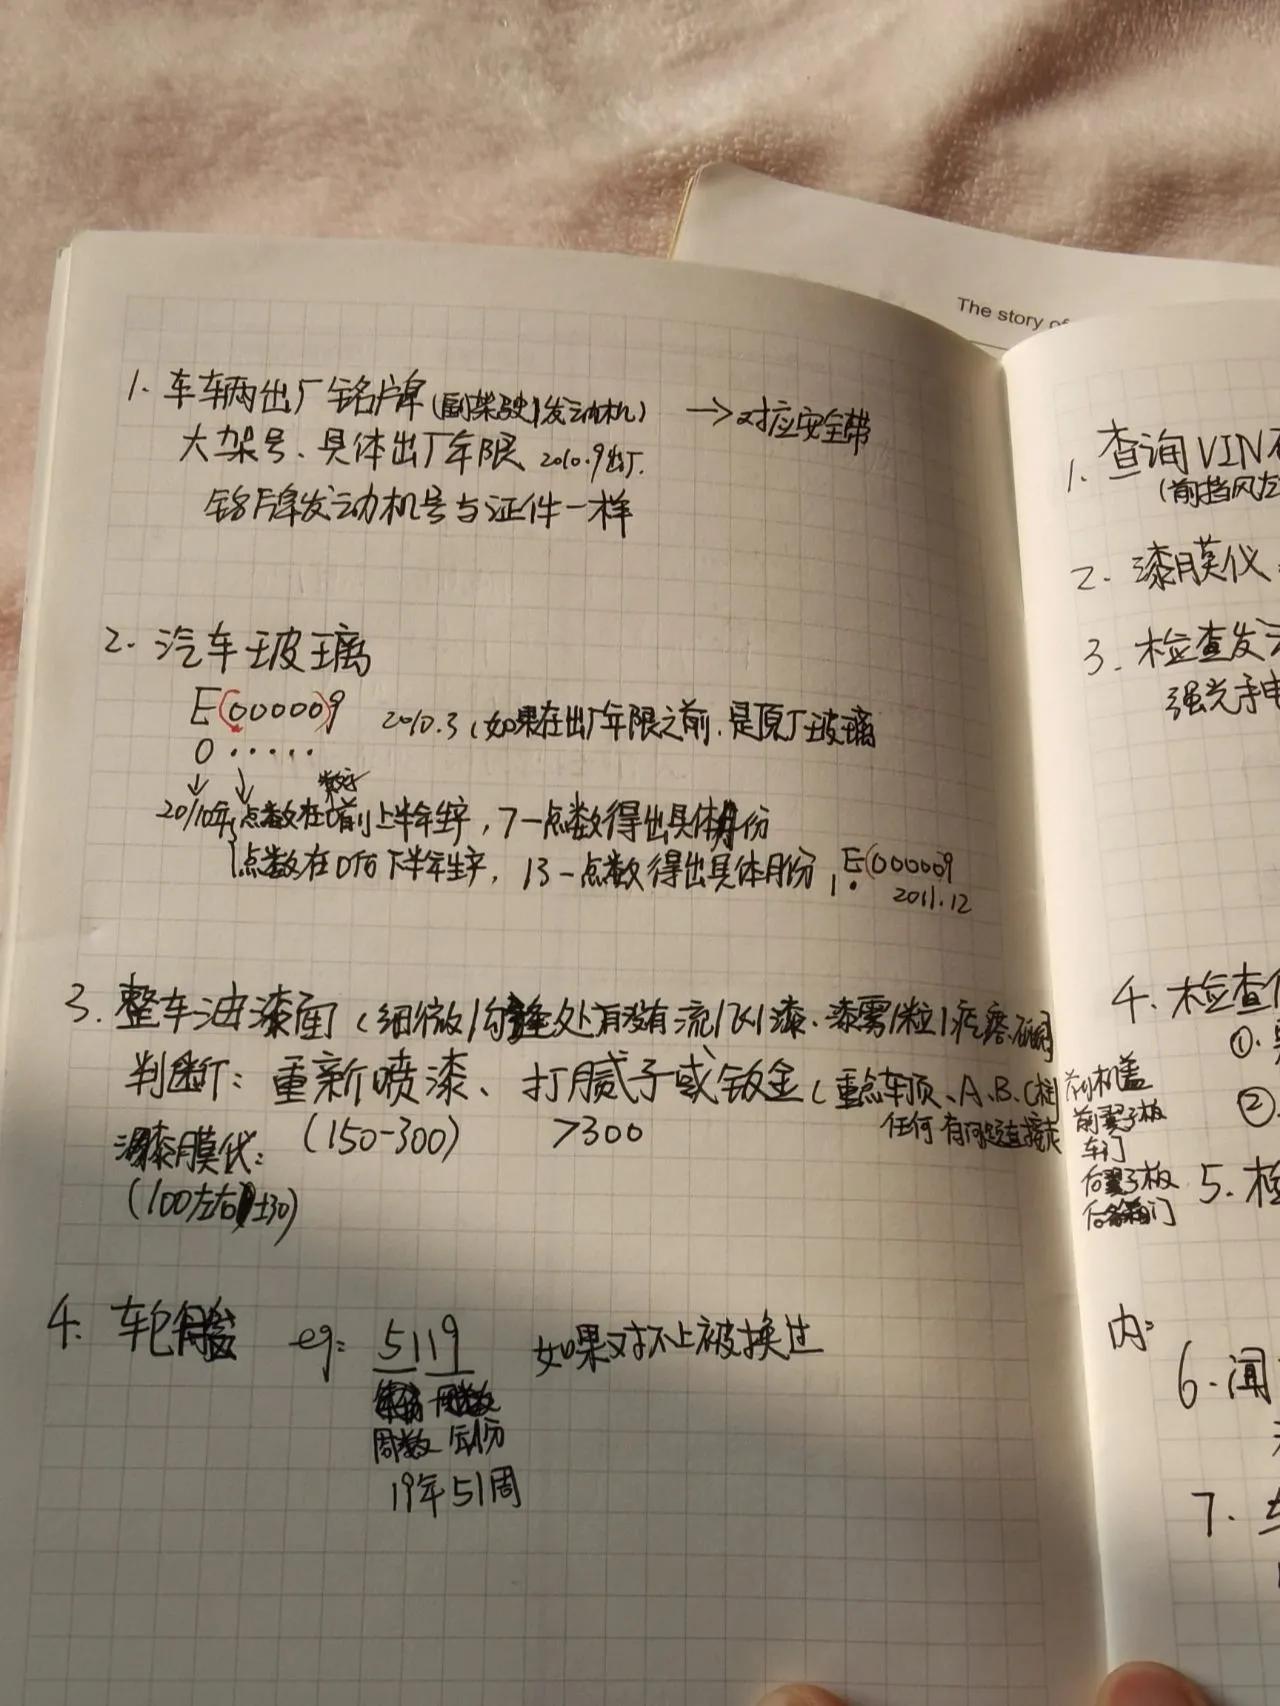 The story of
1. 车车辆出厂铭牌(副驾驶|发动机) →对应安全带
大架号、具体出厂年限 2010.9出厂.
铭牌发动机号与证件一样
2. 汽车玻璃
E(00000)9 2010.3 (如果在出厂年限之前,是原厂玻璃
0 .....
↓ ↓ 数字
2010年{点数在0前|上半年生产,7-点数得出具体月份
点数在0后下半年生产,13-点数得出具体月份, E(000009
1 • 2011.12
3. 整车油漆面(细微/勾缝处有没有流/飞/漆、漆雾/粒/疙瘩
判断: 重新喷漆、打腻子或钣金(重点车顶、A、B、C柱
(150-300) >300 任何有问题直接走
漆膜仪:
(100左右 ±30)
4. 轮胎 eg: 5119 如果对不上被换过
周数 年份
19年51周
1. 查询VIN
(前挡风左
2. 漆膜仪
3. 检查发
强光手电
4. 检查
①.
②.
前机盖
前翼子板
车门
后翼子板
后备箱门
5. 检
内:
6. 闻
7. 车